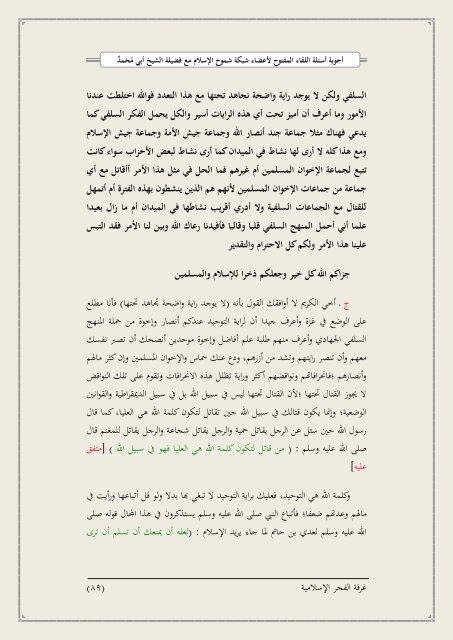 أجوبة أسئلة اللقاء المفتوح لأعضاء شبكة شموخ الإسلام مع فضيلة الشيخ أبي مُحَمدٌ
السلفي ولكن لا يوجد راية واضحة نجاهد تحتها مع هذا التعدد فوالله اختلطت عندنا
الأمور وما أعرف أن أميز تحت أي هذه الرايات أسير والكل يحمل الفكر السلفي كما
يدعي فهناك مثلا جماعة جند أنصار الله وجماعة جيش الأمة وجماعة جيش الإسلام
ومع هذا كله لا أرى لها نشاط في الميدان كما أرى نشاط لبعض الأحزاب سواء كانت
تتبع لجماعة الإخوان المسلمين أم غيرهم فما الحل في مثل هذا الأمر أأقاتل مع أي
جماعة من جماعات الإخوان المسلمين لأنهم هم الذين ينشطون بهذه الفترة أم أتمهل
للقتال مع الجماعات السلفية ولا أدري أقريب نشاطها في الميدان أم ما زال بعيدا
علما أني أحمل المنهج السلفي قلبا وقالبا فأفيدنا رعاك الله وبين لنا الأمر فقد التبس
علينا هذا الأمر ولكم كل الاحترام والتقدير
جزاكم الله كل خير وجعلكم ذخرا للإسلام والمسلمين
ج . أخي الكريم لا أوافقك القول بأنه (لا يوجد راية واضحة نجاهد تحتها) فأنا مطلع
على الوضع في غزة وأعرف جيدا أن لراية التوحيد عندكم أنصار وإخوة من حملة المنهج
السلفي الجهادي وأعرف منهم طلبة علم أفاضل وإخوة موحدين أنصحك أن تصبر نفسك
معهم وأن تنصر رايتهم وتشد من أزرهم، ودع عنك حماس والإخوان المسلمين وإن كثر مالهم
وأنصارهم ؛فانحرافاتهم ونواقضهم أكثر وراية تظلل هذه الانحرافات وتقوم على تلك النواقض
لا يجوز القتال تحتها ؛لأن القتال تحتها ليس في سبيل الله بل في سبيل الديمقراطية والقوانين
الوضعية؛ وإنما يكون قتالك في سبيل الله حين تقاتل لتكون كلمة الله هي العليا، كما قال
رسول الله حين سئل عن الرجل يقاتل حمية والرجل يقاتل شجاعة والرجل يقاتل للمغنم قال
صلى الله عليه وسلم : ( من قاتل لتكون كلمة الله هي العليا فهو في سبيل الله ) [متفق
عليه]
وكلمة الله هي التوحيد، فعليك براية التوحيد لا تبغي بها بدلا ولو قل أتباعها ورأيت في
مالهم وعدتهم ضعفا؛ فأتباع النبي صلى الله عليه وسلم يستذكرون في هذا المجال قوله صلى
الله عليه وسلم لعدي بن حاتم لما جاء يريد الإسلام : (لعله أن يمنعك أن تسلم أن ترى
غرفة الفجر الإسلامية
(٨٩)